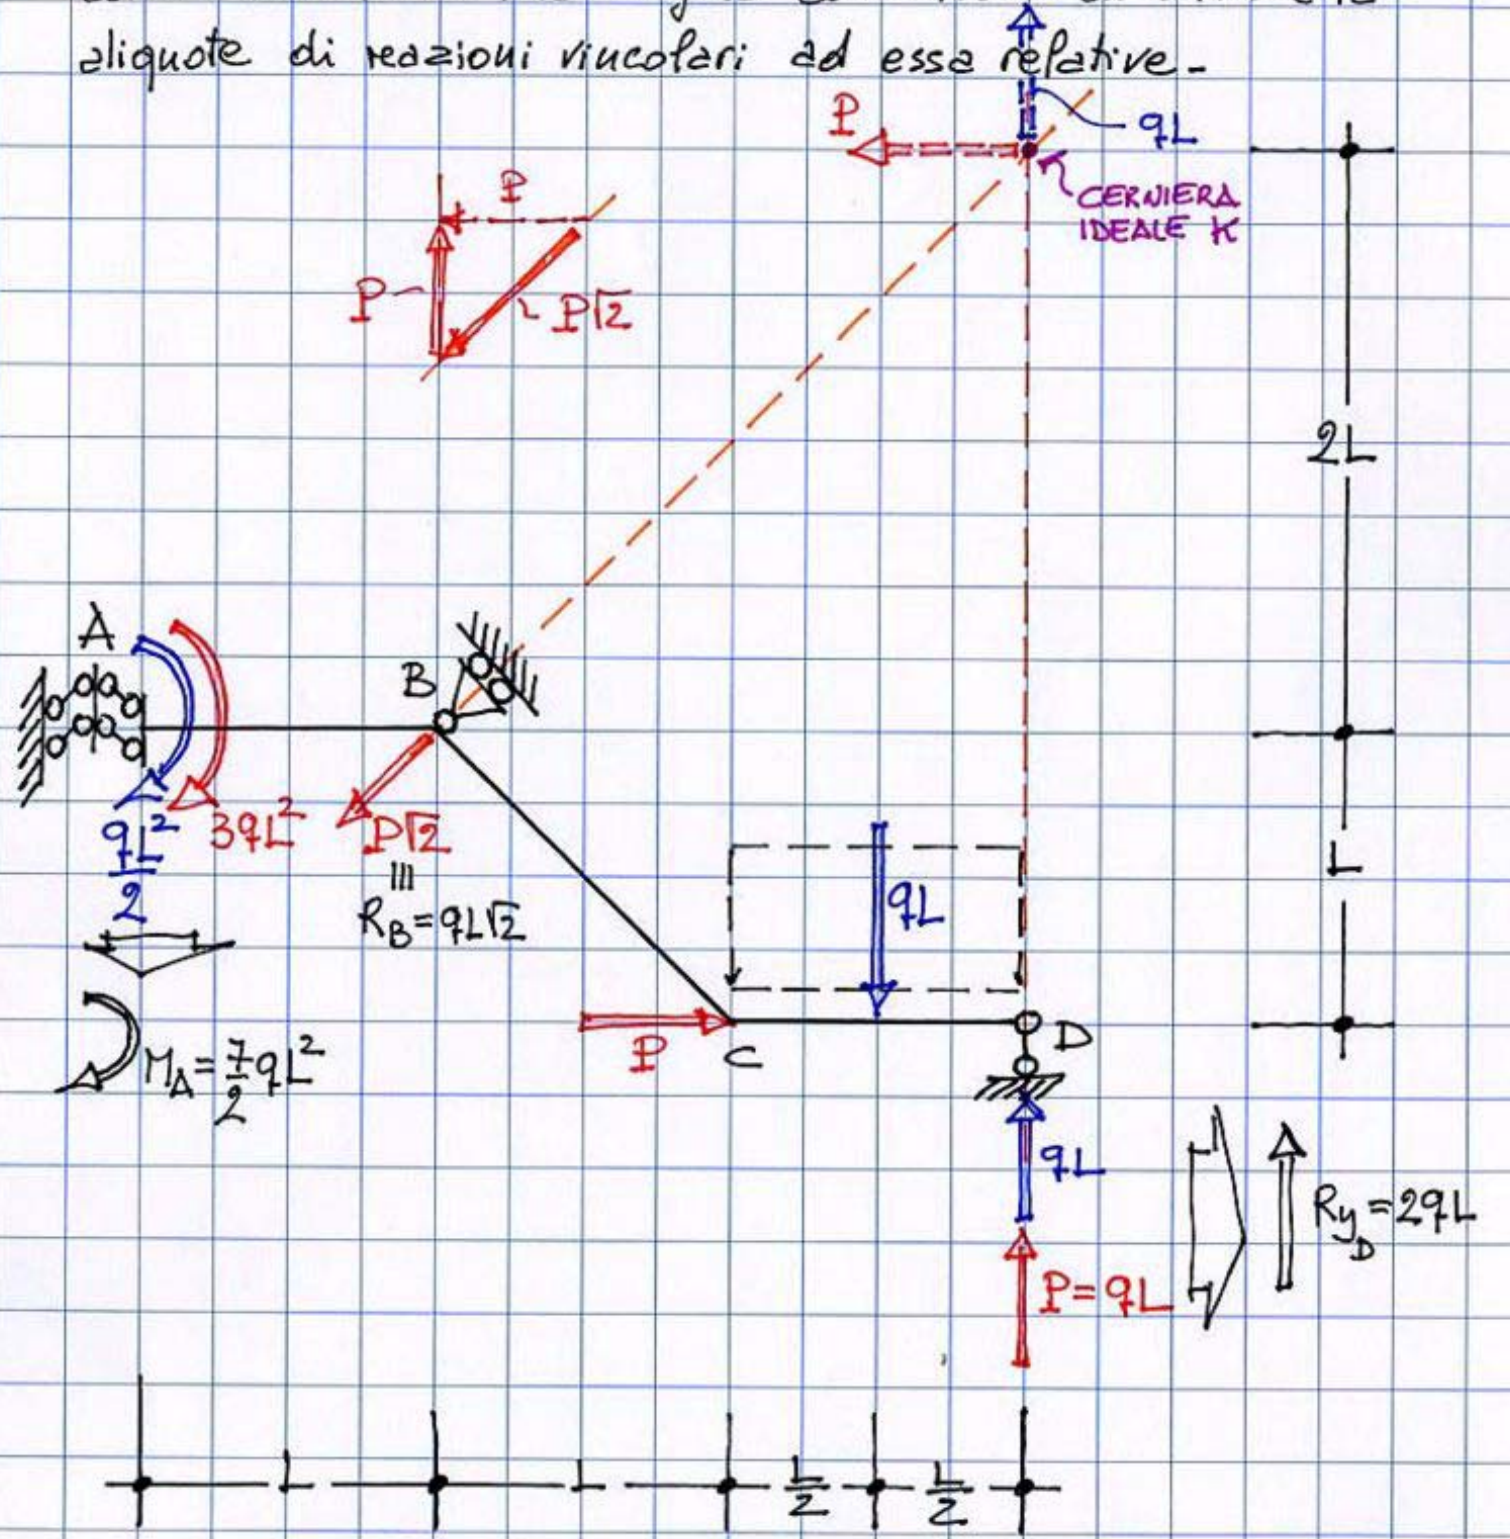 aliquote di reazioni vincolari ad essa relative-
P
qL
CERNIERA
IDEALE K
P
P
P√2
2L
A
B
qL²/2
3qL²
P√2
III
R_B=qL√2
qL
L
P
C
D
M_A=7/2qL²
qL
R_yD=2qL
P=qL
L
L
L/2
L/2